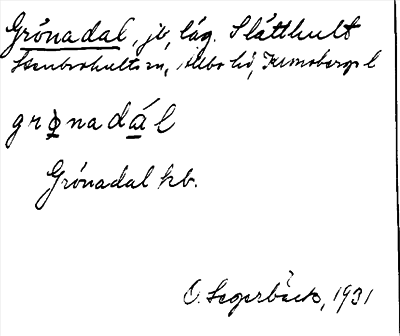 Grönadal, jb, läg. Slätthult
Stenbrohults sn, Allbo hd, Kronobergs l
grönadál
Grönadal kb.
O. Segerbäck, 1931